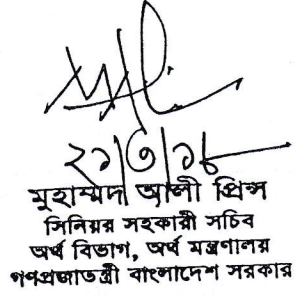 ২১/৩/১৮
মুহাম্মদ আলী প্রিন্স
সিনিয়র সহকারী সচিব
অর্থ বিভাগ, অর্থ মন্ত্রণালয়
গণপ্রজাতন্ত্রী বাংলাদেশ সরকার